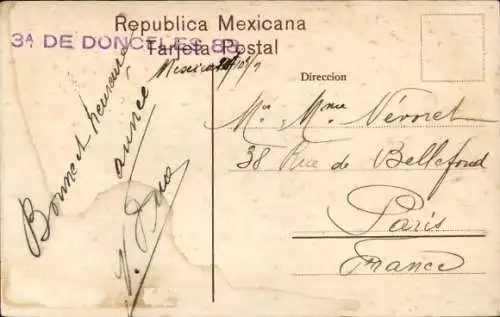 Republica Mexicana
3ª DE DONCELES 83
Tarjeta Postal
Direccion
Bonne et heureuse
année
Mr Mme
38 Rue de Bellefond
Paris
France